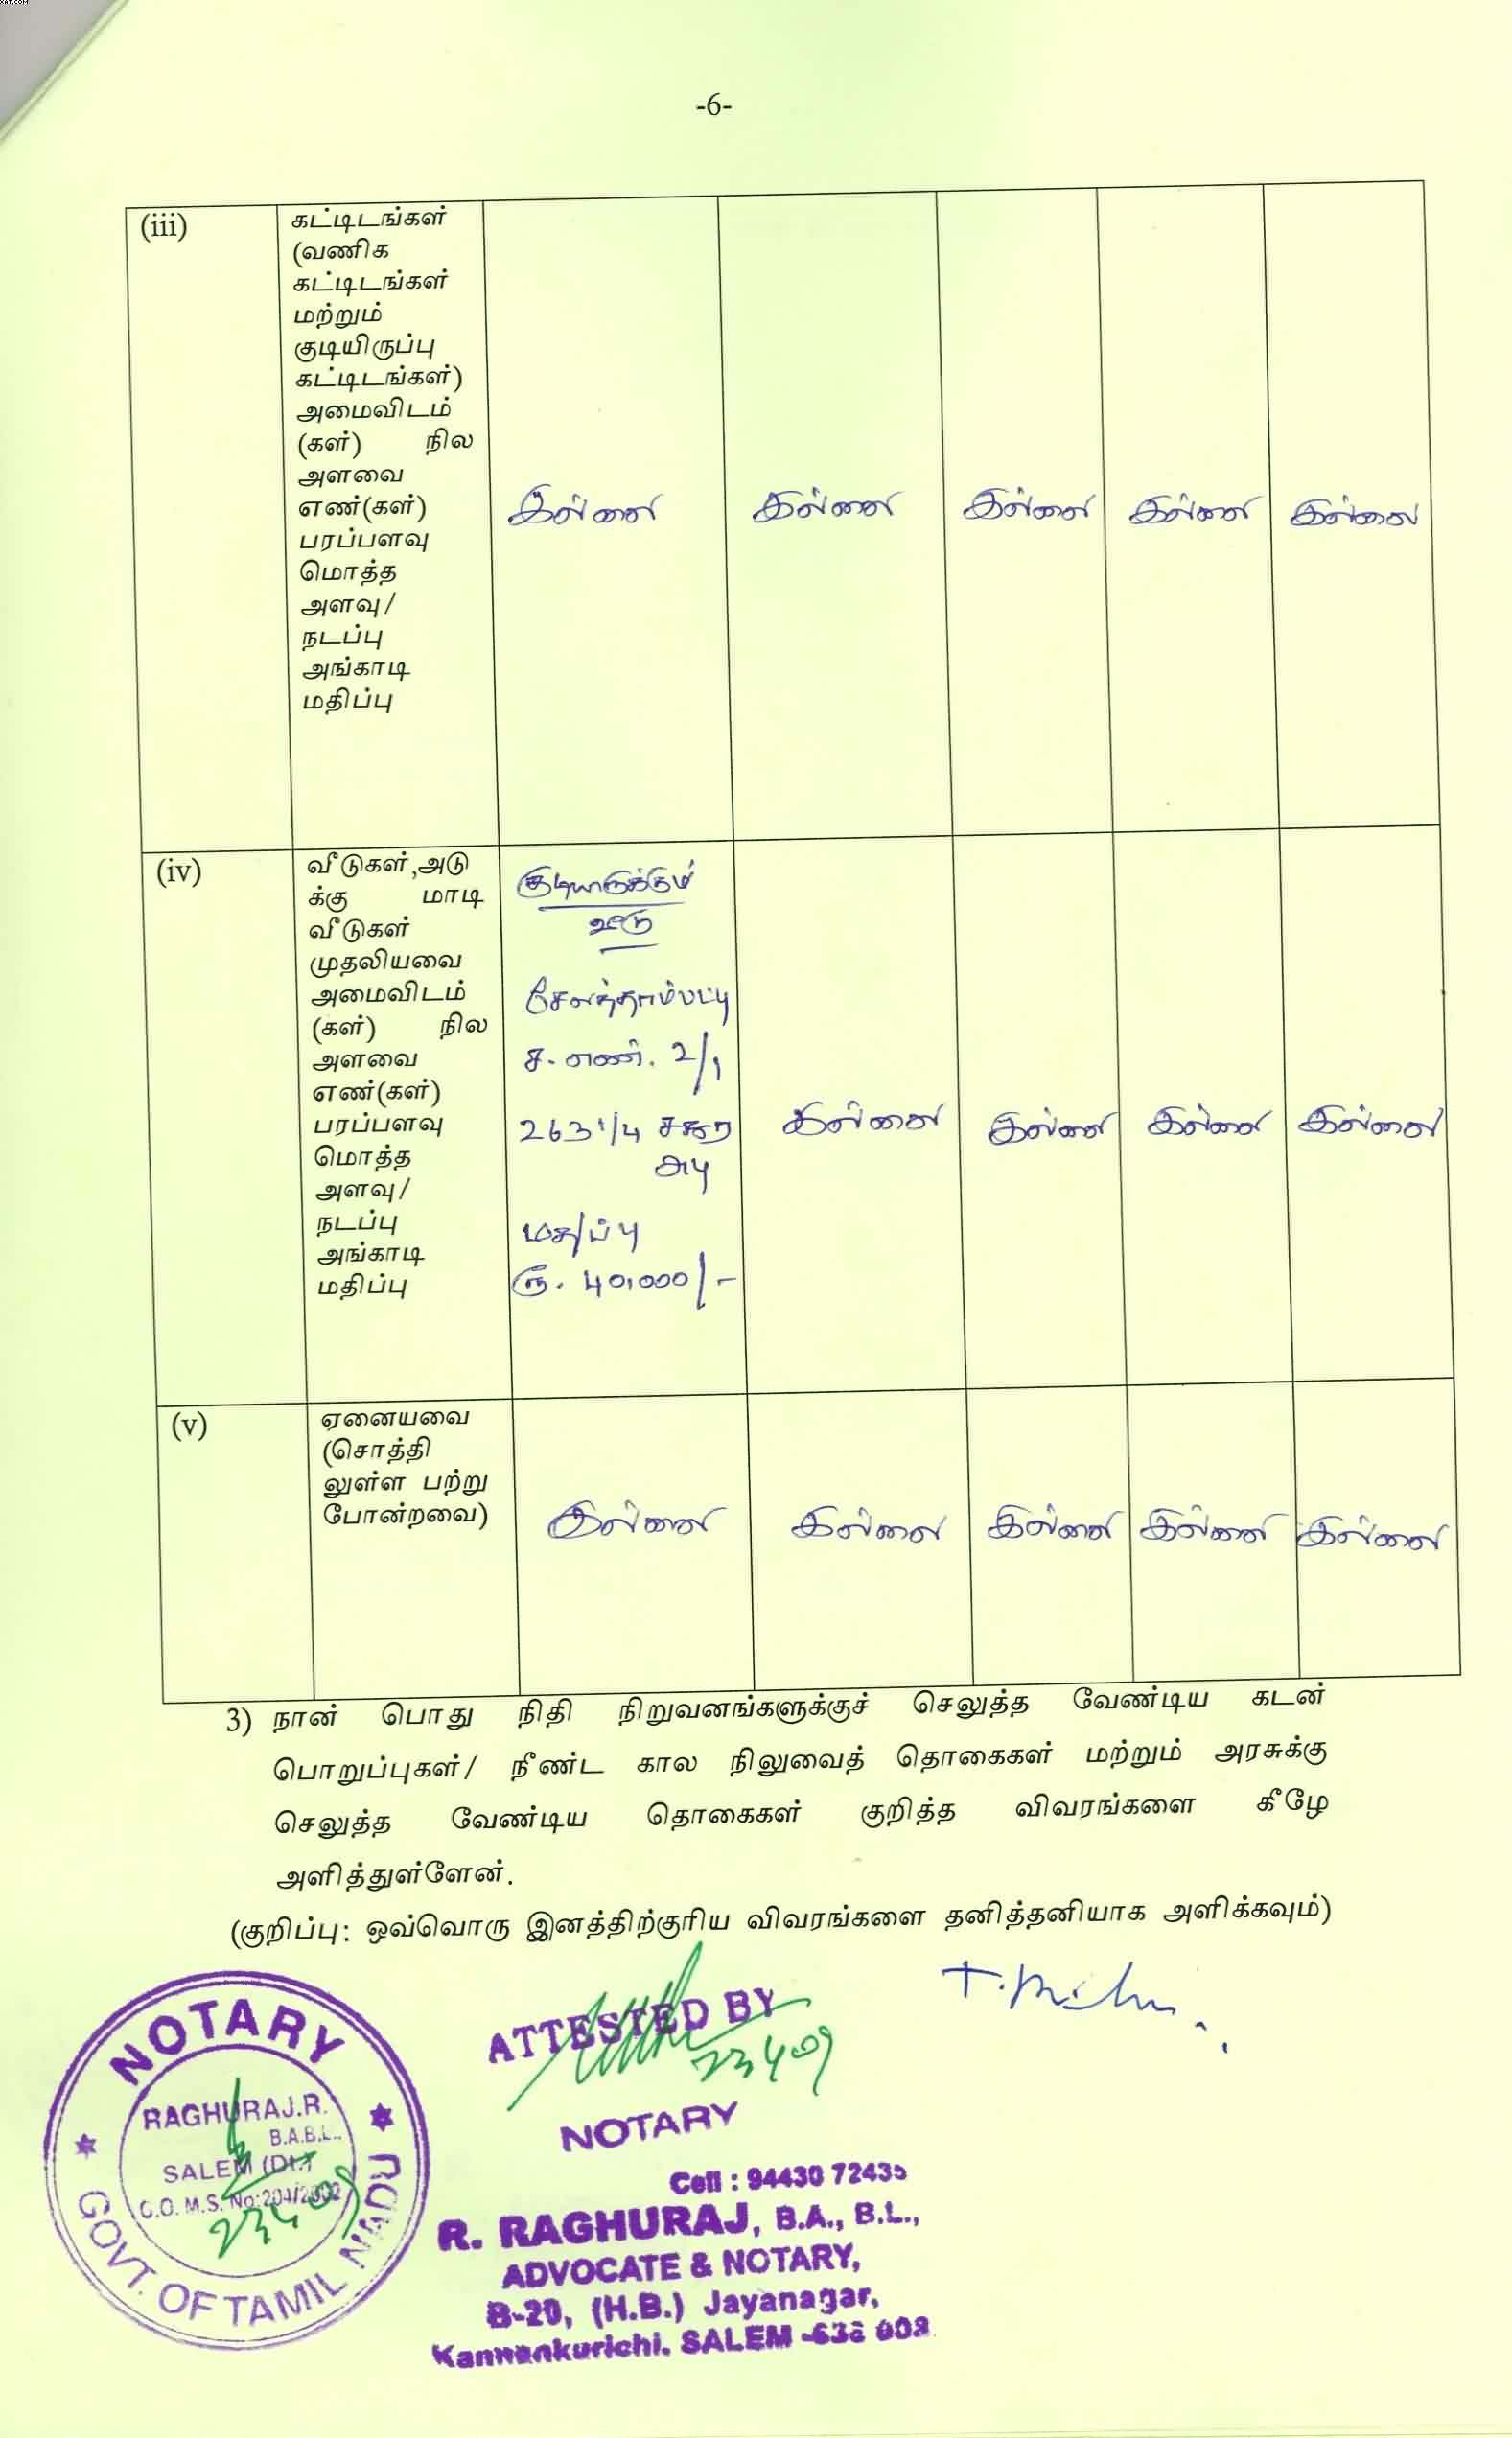 -6-
(iii)
கட்டிடங்கள்
(வணிக
கட்டிடங்கள்
மற்றும்
குடியிருப்பு
கட்டிடங்கள்)
அமைவிடம்
(கள்) நில
அளவை
எண்(கள்)
பரப்பளவு
மொத்த
அளவு/
நடப்பு
அங்காடி
மதிப்பு
இல்லை இல்லை இல்லை இல்லை இல்லை
(iv)
வீடுகள்,அடு
க்கு மாடி
வீடுகள்
முதலியவை
அமைவிடம்
(கள்) நில
அளவை
எண்(கள்)
பரப்பளவு
மொத்த
அளவு/
நடப்பு
அங்காடி
மதிப்பு
குடியிருக்கும்
வீடு
ச. எண். 2/1
263 1/4 சதுர
அடி
மதிப்பு
ரூ. 40,000/-
இல்லை இல்லை இல்லை இல்லை
(v)
ஏனையவை
(சொத்தி
லுள்ள பற்று
போன்றவை)
இல்லை இல்லை இல்லை இல்லை இல்லை
3) நான் பொது நிதி நிறுவனங்களுக்குச் செலுத்த வேண்டிய கடன்
பொறுப்புகள்/ நீண்ட கால நிலுவைத் தொகைகள் மற்றும் அரசுக்கு
செலுத்த வேண்டிய தொகைகள் குறித்த விவரங்களை கீழே
அளித்துள்ளேன்.
(குறிப்பு: ஒவ்வொரு இனத்திற்குரிய விவரங்களை தனித்தனியாக அளிக்கவும்)
NOTARY
RAGHURAJ.R.
B.A.B.L..
SALEM (Dt.)
G.O. M.S. No:204/2002
23409
GOVT. OF TAMIL NADU
ATTESTED BY
23409
NOTARY
Cell : 94430 72435
R. RAGHURAJ, B.A., B.L.,
ADVOCATE & NOTARY,
B-20, (H.B.) Jayanagar,
Kannankurichi. SALEM -636 008